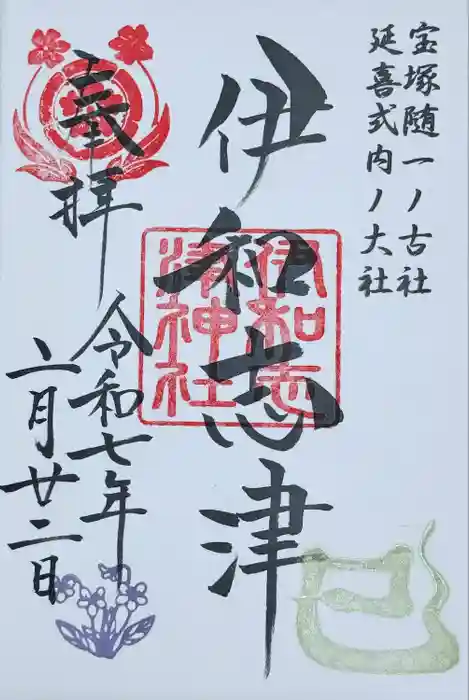 宝塚随一ノ古社
延喜式内ノ大社
伊和志津
伊和志
津神社
奉拝
令和七年
二月廿二日
巳